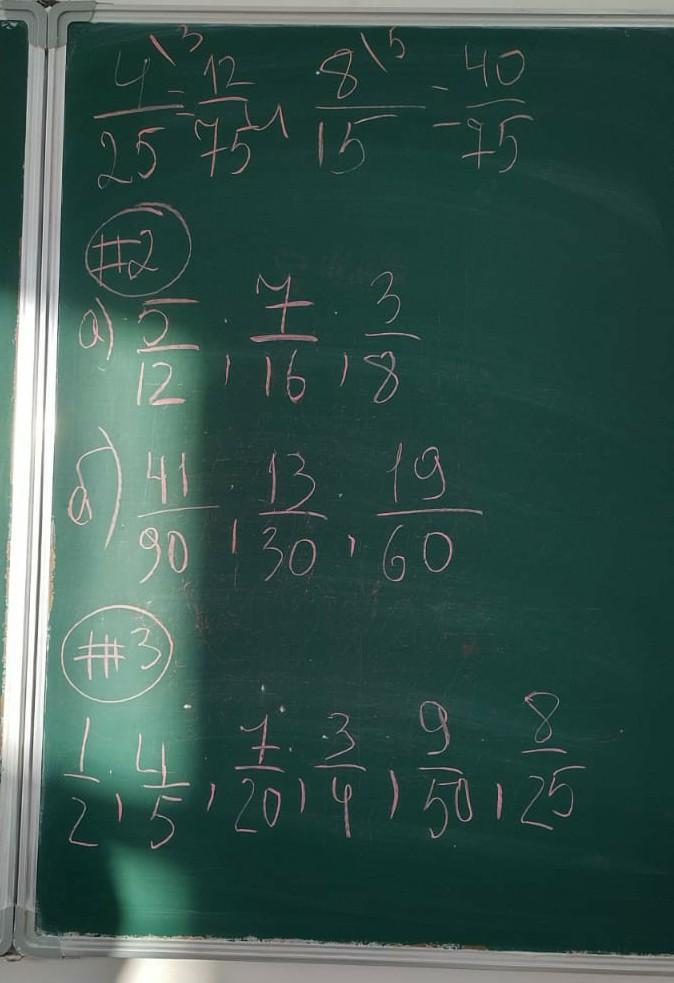 4\3/25 = 12/75, 8\5/15 = 40/75
#2
а) 5/12; 7/16; 3/8
б) 41/90; 13/30; 19/60
#3
1/2; 4/5; 7/20; 3/4; 9/50; 8/25